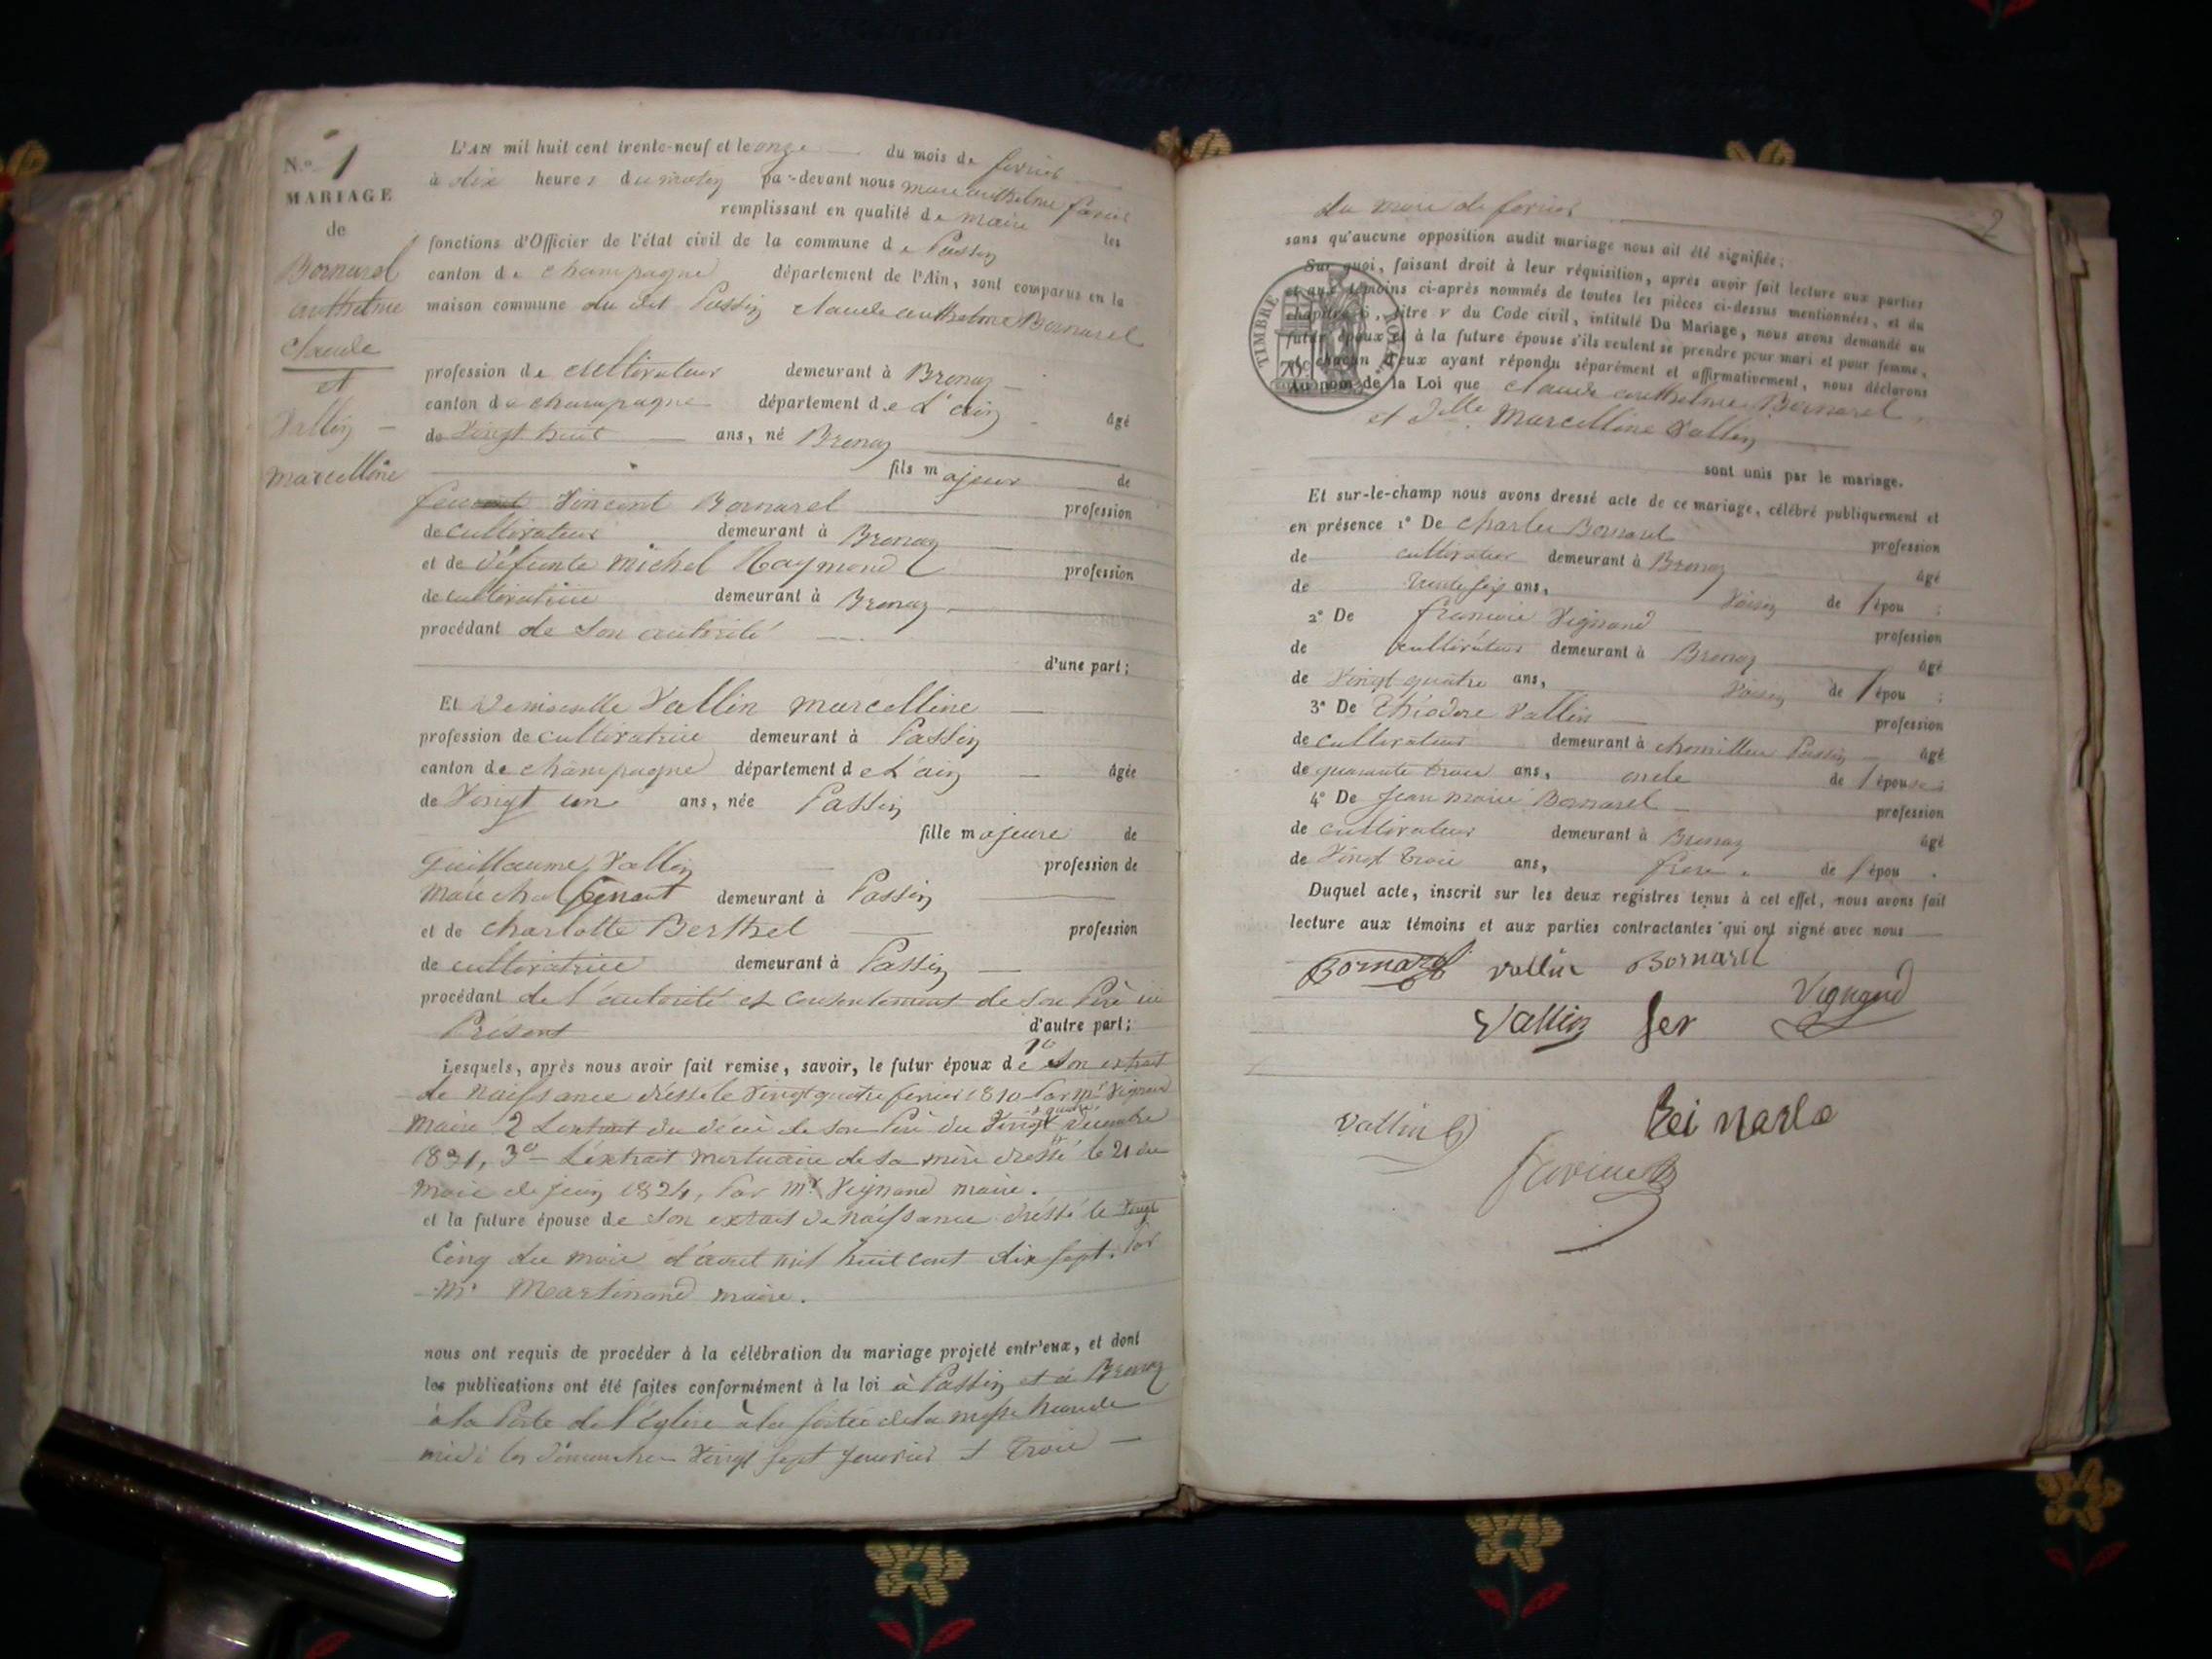 N.o 1
MARIAGE
de
Bornarel
anthelme
Claude
et
Vallin
marcelline
L'AN mil huit cent trente-neuf et le onze du mois de fevrier
à dix heures du matin par-devant nous marc anthelme
remplissant en qualité de maire les
fonctions d'Officier de l'état civil de la commune de Passin
canton de champagne département de l'Ain, sont comparus en la
maison commune du dit Passin claude anthelme Bornarel
profession de cultivateur demeurant à Brenaz
canton de champagne département de L'ain âgé
de Vingt huit ans, né Brenaz
fils majeur de
feu Vincent Bornarel profession
de cultivateur demeurant à Brenaz
et de défunte michel Raymond profession
de cultivatrice demeurant à Brenaz
procédant de son autorité
d'une part;
Et Demoiselle Vallin marcelline
profession de cultivatrice demeurant à Passin
canton de champagne département de L'ain âgée
de Vingt un ans, née Passin
fille majeure de
Guillaume Vallin profession de
demeurant à Passin
et de charlotte Berthet profession
de cultivatrice demeurant à Passin
procédant de l'autorité et consentement de son Père ici
Présent d'autre part;
Lesquels, après nous avoir fait remise, savoir, le futur époux de 1o son extrait
de naissance dressé le Vingt quatre fevrier 1810 Par mr Vignand
maire 2 L'extrait du décè de son Père du Vingt quatre Decembre
1831, 3o L'extrait mortuaire de sa mère dressé le 21 du
mois de juin 1824, Par mr Vignand maire.
et la future épouse de son extrait de naissance dressé le Vingt
Cinq du mois d'avril mil huit cent dix sept. Par
mr Martinand maire.
nous ont requis de procéder à la célébration du mariage projeté entr'eux, et dont
les publications ont été faites conformément à la loi à Passin et à Brenaz
à la Porte de l'église à la sortie de la messe
midi les dimanches Vingt sept janvier et Trois
2
du mois de fevrier
sans qu'aucune opposition audit mariage nous ait été signifiée;
Sur quoi, faisant droit à leur réquisition, après avoir fait lecture aux parties
et aux témoins ci-après nommés de toutes les pièces ci-dessus mentionnées, et du
chapitre 6, titre V du Code civil, intitulé Du Mariage, nous avons demandé au
futur époux et à la future épouse s'ils veulent se prendre pour mari et pour femme,
et chacun d'eux ayant répondu séparément et affirmativement, nous déclarons
Au nom de la Loi que claude anthelme Bornarel
et Delle Marcelline Vallin
sont unis par le mariage.
TIMBRE ROYAL
Et sur-le-champ nous avons dressé acte de ce mariage, célébré publiquement et
en présence 1o De charles Bornarel profession
de cultivateur demeurant à Brenaz âgé
de Trente six ans, Voisin de l'épou ;
2o De francois Vignand profession
de cultivateur demeurant à Brenaz âgé
de Vingt quatre ans, Voisin de l'épou ;
3o De Théodore Vallin profession
de cultivateur demeurant à Passin âgé
de quarante trois ans, oncle de l'épouse;
4o De Jean marie Bornarel profession
de cultivateur demeurant à Brenaz âgé
de Vingt Trois ans, frere de l'épou .
Duquel acte, inscrit sur les deux registres tenus à cet effet, nous avons fait
lecture aux témoins et aux parties contractantes qui ont signé avec nous
Bornarel vallin Bornarel
Vignand
Vallin fer
Vallin